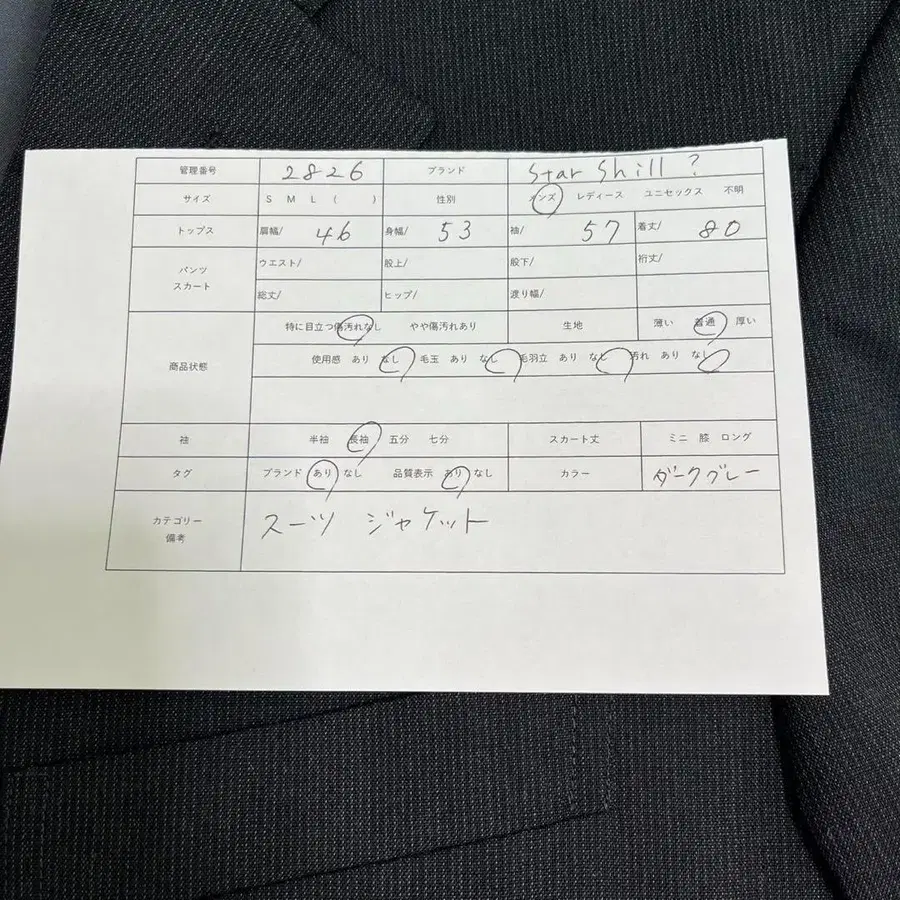 管理番号 2826 ブランド Star Shill ?
サイズ S M L ( ) 性別 メンズ レディース ユニセックス 不明
トップス 肩幅/ 46 身幅/ 53 袖/ 57 着丈/ 80
パンツ スカート ウエスト/ 股上/ 股下/ 裄丈/
総丈/ ヒップ/ 渡り幅/
商品状態 特に目立つ傷汚れなし やや傷汚れあり 生地 薄い 普通 厚い
使用感 あり なし 毛玉 あり なし 毛羽立 あり なし 汚れ あり なし
袖 半袖 長袖 五分 七分 スカート丈 ミニ 膝 ロング
タグ ブランド あり なし 品質表示 あり なし カラー ダークグレー
カテゴリー 備考 スーツ ジャケット